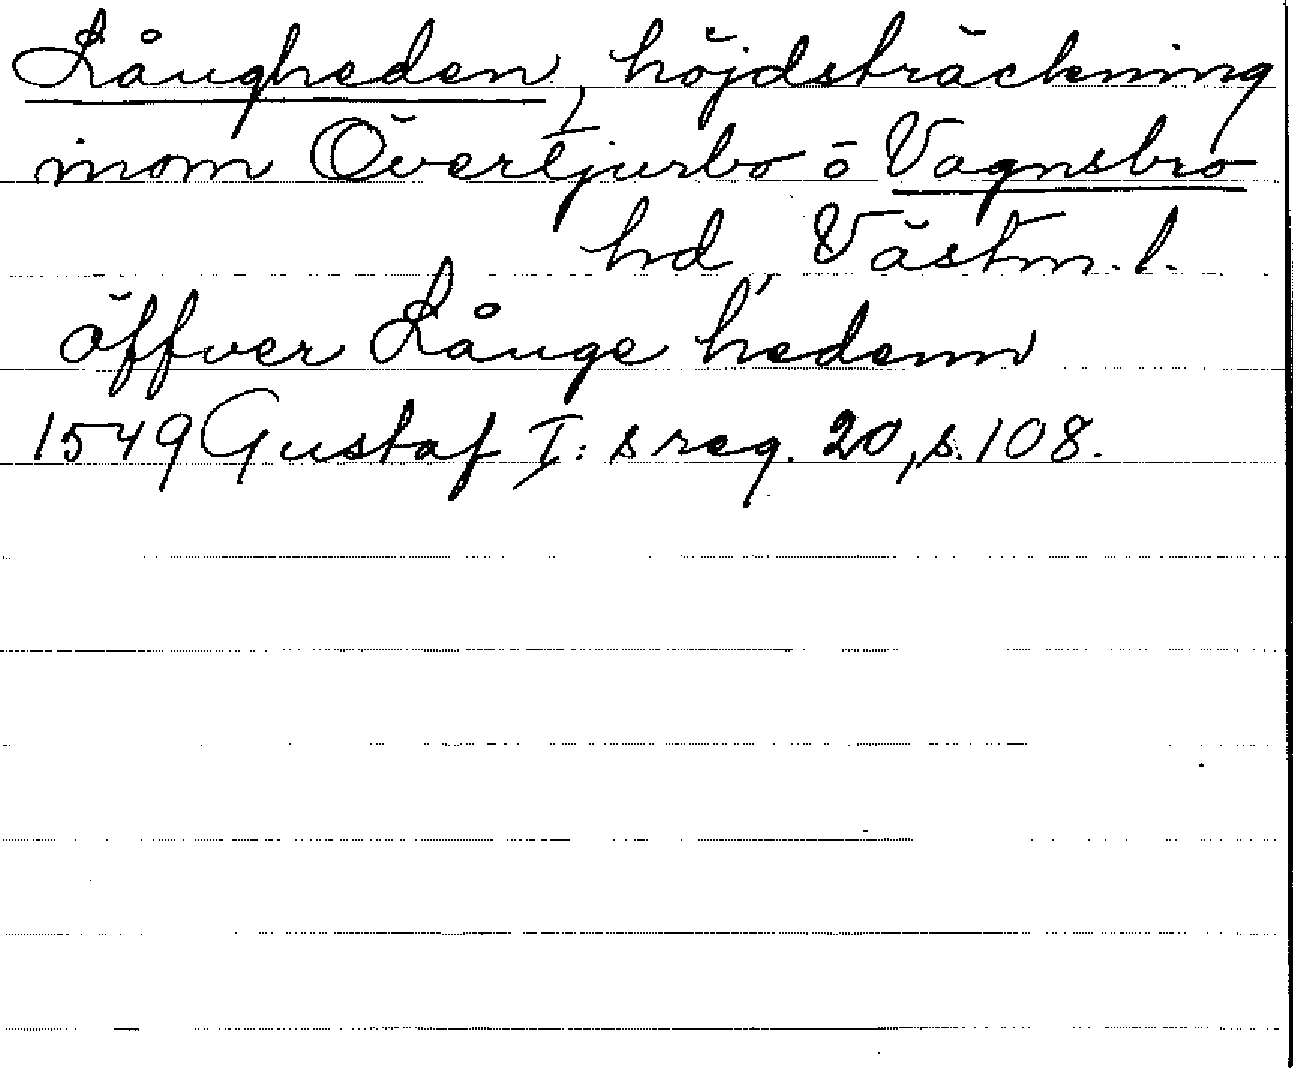 Långheden, höjdsträckning
inom Övertjurbo o Vagnsbro
hd, Västm. l.
öffver Långe hedenn
1549 Gustaf I:s reg. 20, s. 108.